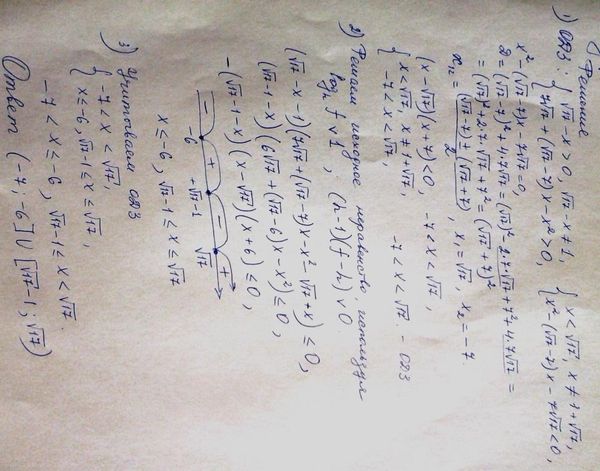 Решение
1) ОДЗ: { √17 - x > 0, √17 - x ≠ 1, { x < √17, x ≠ 1 + √17,
7√17 + (√17 - 7)x - x² > 0, x² - (√17 - 7)x - 7√17 < 0,
x² - (√17 - 7)x - 7√17 = 0,
D = (√17 - 7)² + 4·7√17 = (√17)² - 2·7·√17 + 7² + 4·7√17 =
= (√17)² + 2·7·√17 + 7² = (√17 + 7)²
x₁,₂ = ((√17 - 7) ± (√17 + 7))/2, x₁ = √17, x₂ = -7
(x - √17)(x + 7) < 0, -7 < x < √17,
{ x < √17, x ≠ 1 + √17, -7 < x < √17. - ОДЗ
-7 < x < √17,
2) Решаем исходное неравенство, используя
logₕ f ∨ 1, (h - 1)(f - h) ∨ 0.
(√17 - x - 1)(7√17 + (√17 - 7)x - x² - √17 + x) ≤ 0,
(√17 - 1 - x)(6√17 + (√17 - 6)x - x²) ≤ 0,
-(√17 - 1 - x)(x - √17)(x + 6) ≤ 0,
- -6 + √17 - 1 - √17 +
x ≤ -6, √17 - 1 ≤ x ≤ √17
3) Учитываем ОДЗ
{ -7 < x < √17,
x ≤ -6, √17 - 1 ≤ x ≤ √17,
-7 < x ≤ -6, √17 - 1 ≤ x < √17.
Ответ (-7; -6] ∪ [√17 - 1; √17)